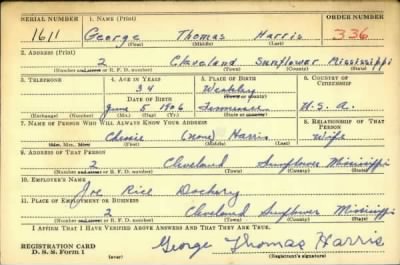 SERIAL NUMBER 1. NAME (Print) ORDER NUMBER
1611 George Thomas Harris 336
(First) (Middle) (Last)
2. ADDRESS (Print)
2 Cleveland Sunflower Mississippi
(Number and street or R. F. D. number) (Town) (County) (State)
3. TELEPHONE 4. AGE IN YEARS 5. PLACE OF BIRTH 6. COUNTRY OF CITIZENSHIP
34
DATE OF BIRTH (Town or county)
June 5 1906 Tennessee U.S.A.
(Exchange) (Number) (Mo.) (Day) (Yr.) (State or country)
7. NAME OF PERSON WHO WILL ALWAYS KNOW YOUR ADDRESS 8. RELATIONSHIP OF THAT PERSON
(none) Harris Wife
(Mr., Mrs., Miss) (First) (Middle) (Last)
9. ADDRESS OF THAT PERSON
2 Cleveland Sunflower Mississippi
(Number and street or R. F. D. number) (Town) (County) (State)
10. EMPLOYER'S NAME
Joe Rice Dockery
11. PLACE OF EMPLOYMENT OR BUSINESS
2 Cleveland Sunflower Mississippi
(Number and street or R. F. D. number) (Town) (County) (State)
I AFFIRM THAT I HAVE VERIFIED ABOVE ANSWERS AND THAT THEY ARE TRUE.
REGISTRATION CARD
D. S. S. Form 1 (over) George Thomas Harris
(Registrant's signature)